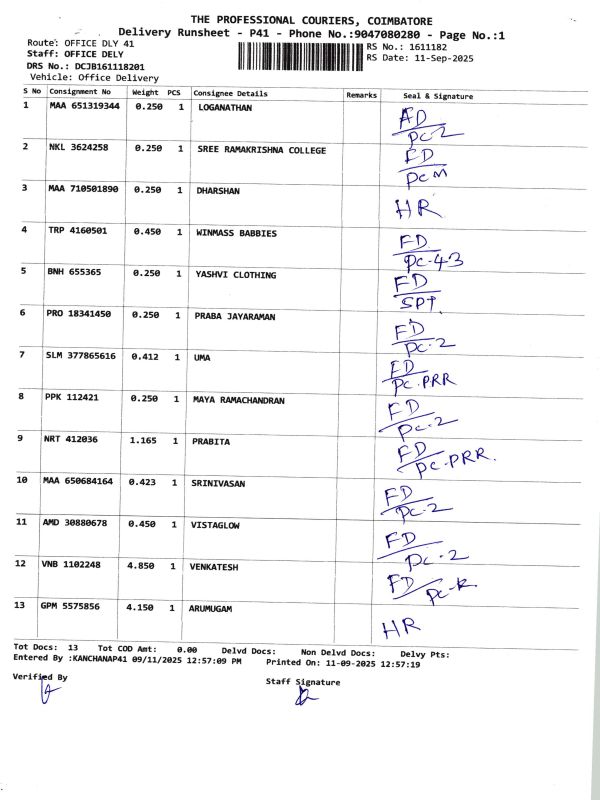 THE PROFESSIONAL COURIERS, COIMBATORE
Delivery Runsheet - P41 - Phone No.:9047080280 - Page No.:1
Route: OFFICE DLY 41
RS No.: 1611182
Staff: OFFICE DELY
RS Date: 11-Sep-2025
DRS No.: DCJB161118201
Vehicle: Office Delivery
S No Consignment No Weight PCS Consignee Details Remarks Seal & Signature
1 MAA 651319344 0.250 1 LOGANATHAN
FD
PC-2
2 NKL 3624258 0.250 1 SREE RAMAKRISHNA COLLEGE
FD
PCM
3 MAA 710501890 0.250 1 DHARSHAN
HR
4 TRP 4160501 0.450 1 WINMASS BABBIES
FD
PC-43
5 BNH 655365 0.250 1 YASHVI CLOTHING
FD
SPT
6 PRO 18341450 0.250 1 PRABA JAYARAMAN
FD
PC-2
7 SLM 377865616 0.412 1 UMA
FD
PC-PRR
8 PPK 112421 0.250 1 MAYA RAMACHANDRAN
FD
PC-2
9 NRT 412036 1.165 1 PRABITA
FD
PC-PRR.
10 MAA 650684164 0.423 1 SRINIVASAN
FD
PC-2
11 AMD 30880678 0.450 1 VISTAGLOW
FD
PC-2
12 VNB 1102248 4.850 1 VENKATESH
FD
PC-K
13 GPM 5575856 4.150 1 ARUMUGAM
HR
Tot Docs: 13 Tot COD Amt: 0.00 Delvd Docs: Non Delvd Docs: Delvy Pts:
Entered By :KANCHANAP41 09/11/2025 12:57:09 PM Printed On: 11-09-2025 12:57:19
Verified By
Staff Signature